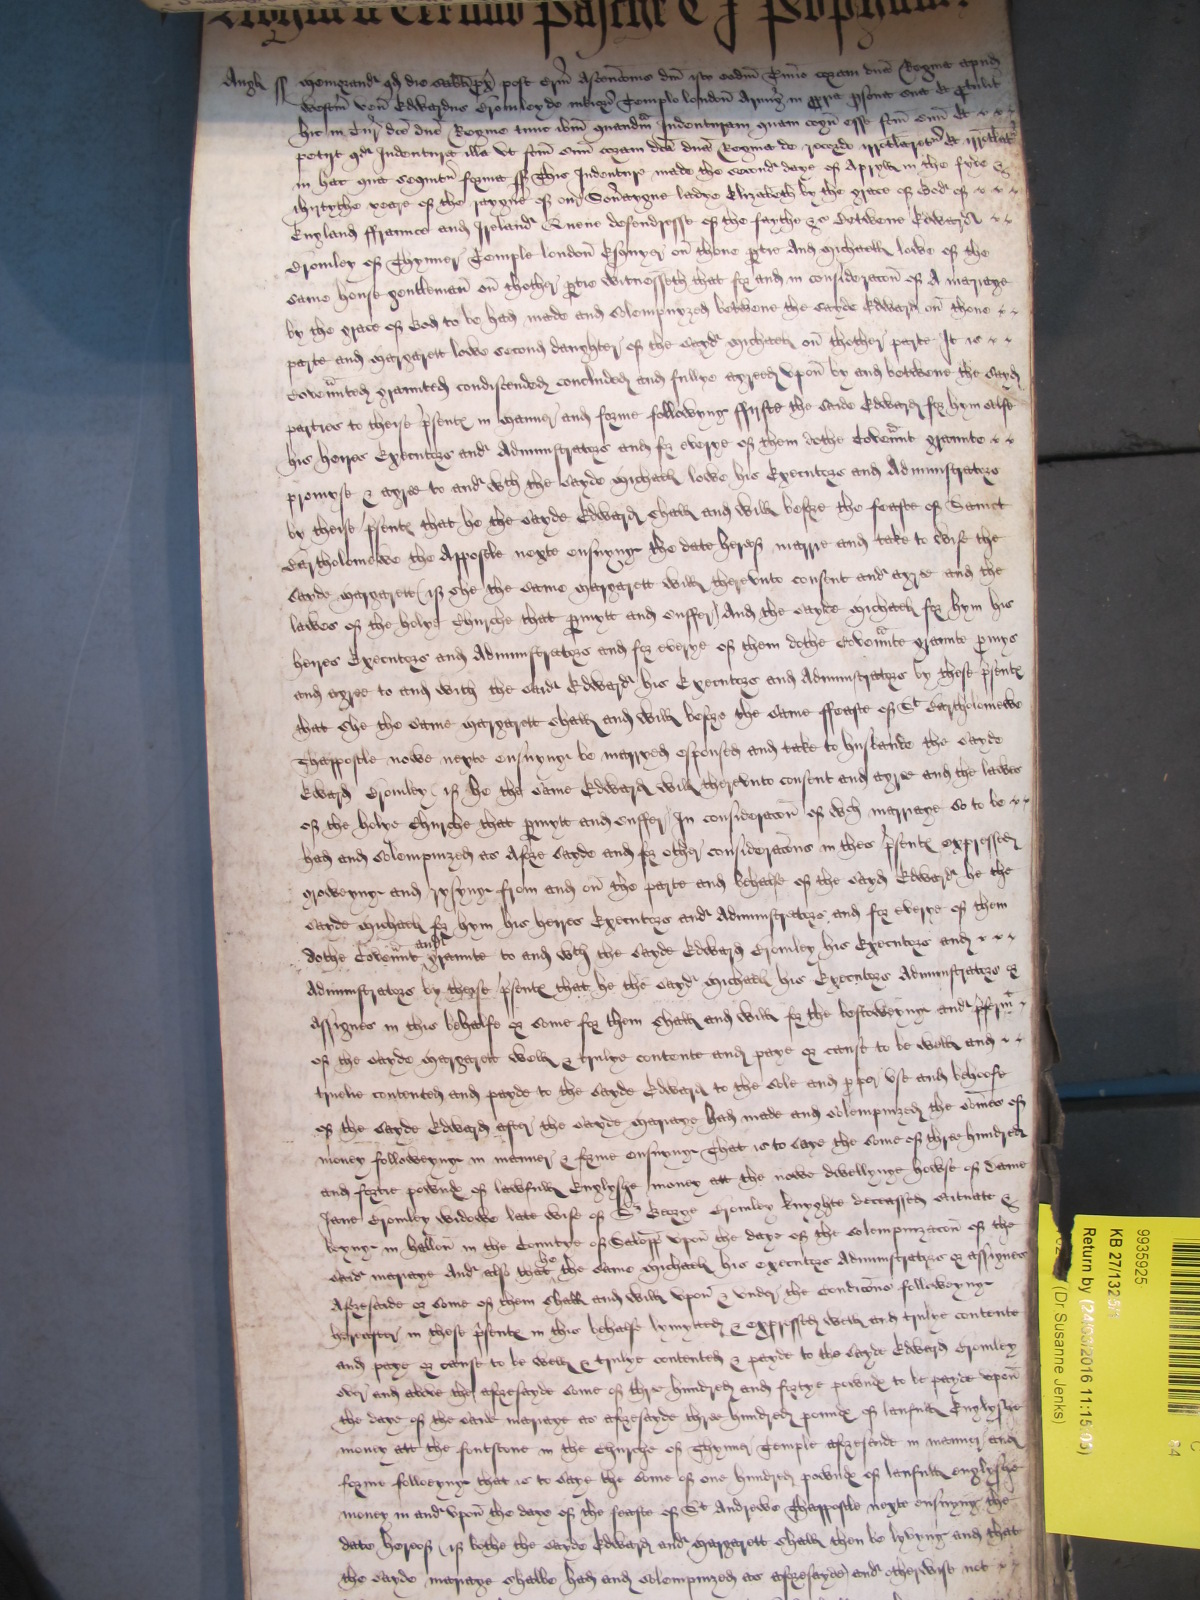 Termino Pasche C J Popham
Angł ss Memorand qd die post Ascencionis dni isto eodm Tmio coram dna Regina apud
Westm ven Edwardus Cromley de Templo london Armig in ppria psona sua et ptulit
hic in Cur dce dne Regine tunc ibm quandm Indenturam quam cogn esse fcm suum et
petit qd Indentura illa ut fcm suum coram dca dna Regina de recordo irrotularetur Et irrotulat
in hac que sequitur forma ss This Indenture made the second daye of Apryll in the fyve &
thirtythe yeare of the raygne of our Sovaygne ladye Elizabeth by the grace of God of
England ffraunce and Ireland Quene defendresse of the faythe &c Betwene Edward
Cromley of Thynner Temple london Esquyer on thone ptie And Michaell lowe of the
same house gentleman on thother ptie Witnesseth that for and in consideracon of A mariage
by the grace of God to be had made and Solempnyzed betwene the sayde Edward on thone
parte and Margarett lowe second daughter of the sayd Michaell on thother parte It is
Covennted graunted condiscended concluded and fullye agreed upon by and betwene the sayd
parties to theise psents in manner and forme followyng ffirste the saide Edward for hym selfe
his heires Executors and Administrators and for everye of them dothe Covennt graunte
promyse & agree to and wth the sayde Michaell lowe his Executors and Administrators
by theise psents that he the sayde Edward shall and will before the feaste of Sainct
Bartholomewe the Appostle nexte ensuyng the date hereof marrie and take to wife the
sayde Margarett (if she the same Margarett will thereunto consent and agree and the
lawes of the holye Churche that pmytt and suffer) And the sayde Michaell for hym his
heires Executors and Administrators and for everye of them dothe Covennte graunte pmys
and agree to and with the said Edward his Executors and Administrators by these psents
that she the same Margarett shall and will before the same ffeaste of St Bartholomewe
Thappostle nowe nexte ensuyng be marryed espoused and take to husbande the sayde
Edward Cromley (if he the same Edward will thereunto consent and agree and the lawes
of the holye Churche that pmytt and suffer) In consideracon of wch marriage so to be
had and Solempnized as Afore sayde and for other consideracons in thes psents expressed
groweyng and rysyng from and on the parte and behalfe of the sayd Edward he the
sayde Michaell for hym his heires Executors and Administrators and for everye of them
dothe Covennt and graunte to and wth the sayde Edward Cromley his Executors and
Administrators by theise psents that he the sayd Michaell his Executors Administrators or
Assignes in this behalfe or some for them shall and will for the bestoweyng and pferm
of the sayde Margarett well & trulye contente and paye or cause to be well and
trulie contented and payde to the sayde Edward to the sole and pper use and behoofe
of the sayde Edward after the sayde Mariage had made and solempnized the somes of
money followeyng in manner & forme ensuyng That is to saye the some of three hundred
and fortie pownds of lawfull Englyshe money att the nowe dwellynge howse of Dame
Jane Cromley widowe late wife of Sr George Cromley knyghte deceassed scituate &
beyng in hallon in the Countye of Salopp upon the daye of the Solempnizacon of the
said mariage And also that he the same Michaell his executors Administrators or assignes
Aforesaide or some of them shall and will upon & under the Condicions followeyng
hereafter in these psents in this behalfe lymyted & expressed well and trulye contente
and paye or cause to be well & trulye contented & payde to the sayde Edward Cromley
over and above the aforesayde some of three hundred and fortye pownds to be payde upon
the daye of the saide mariage as aforesayde three hundred pownds of laufull Englyshe
money att the fontstone in the Churche of Thynner Temple aforesaide in manner and
forme followeyng that is to saye the some of one hundred pownds of laufull englyshe
money in and upon the daye of the feaste of St Andrewe Thappostle nexte ensuyng the
date hereof (if bothe the sayde Edward and Margarett shall then be lyvyng and that
the sayde mariage shalbe had and solempnized as aforesayde) and otherwise not
9935925
KB 27/1325/1
Return by (24/03/2016 11:15:06)
(Dr Susanne Jenks)
C